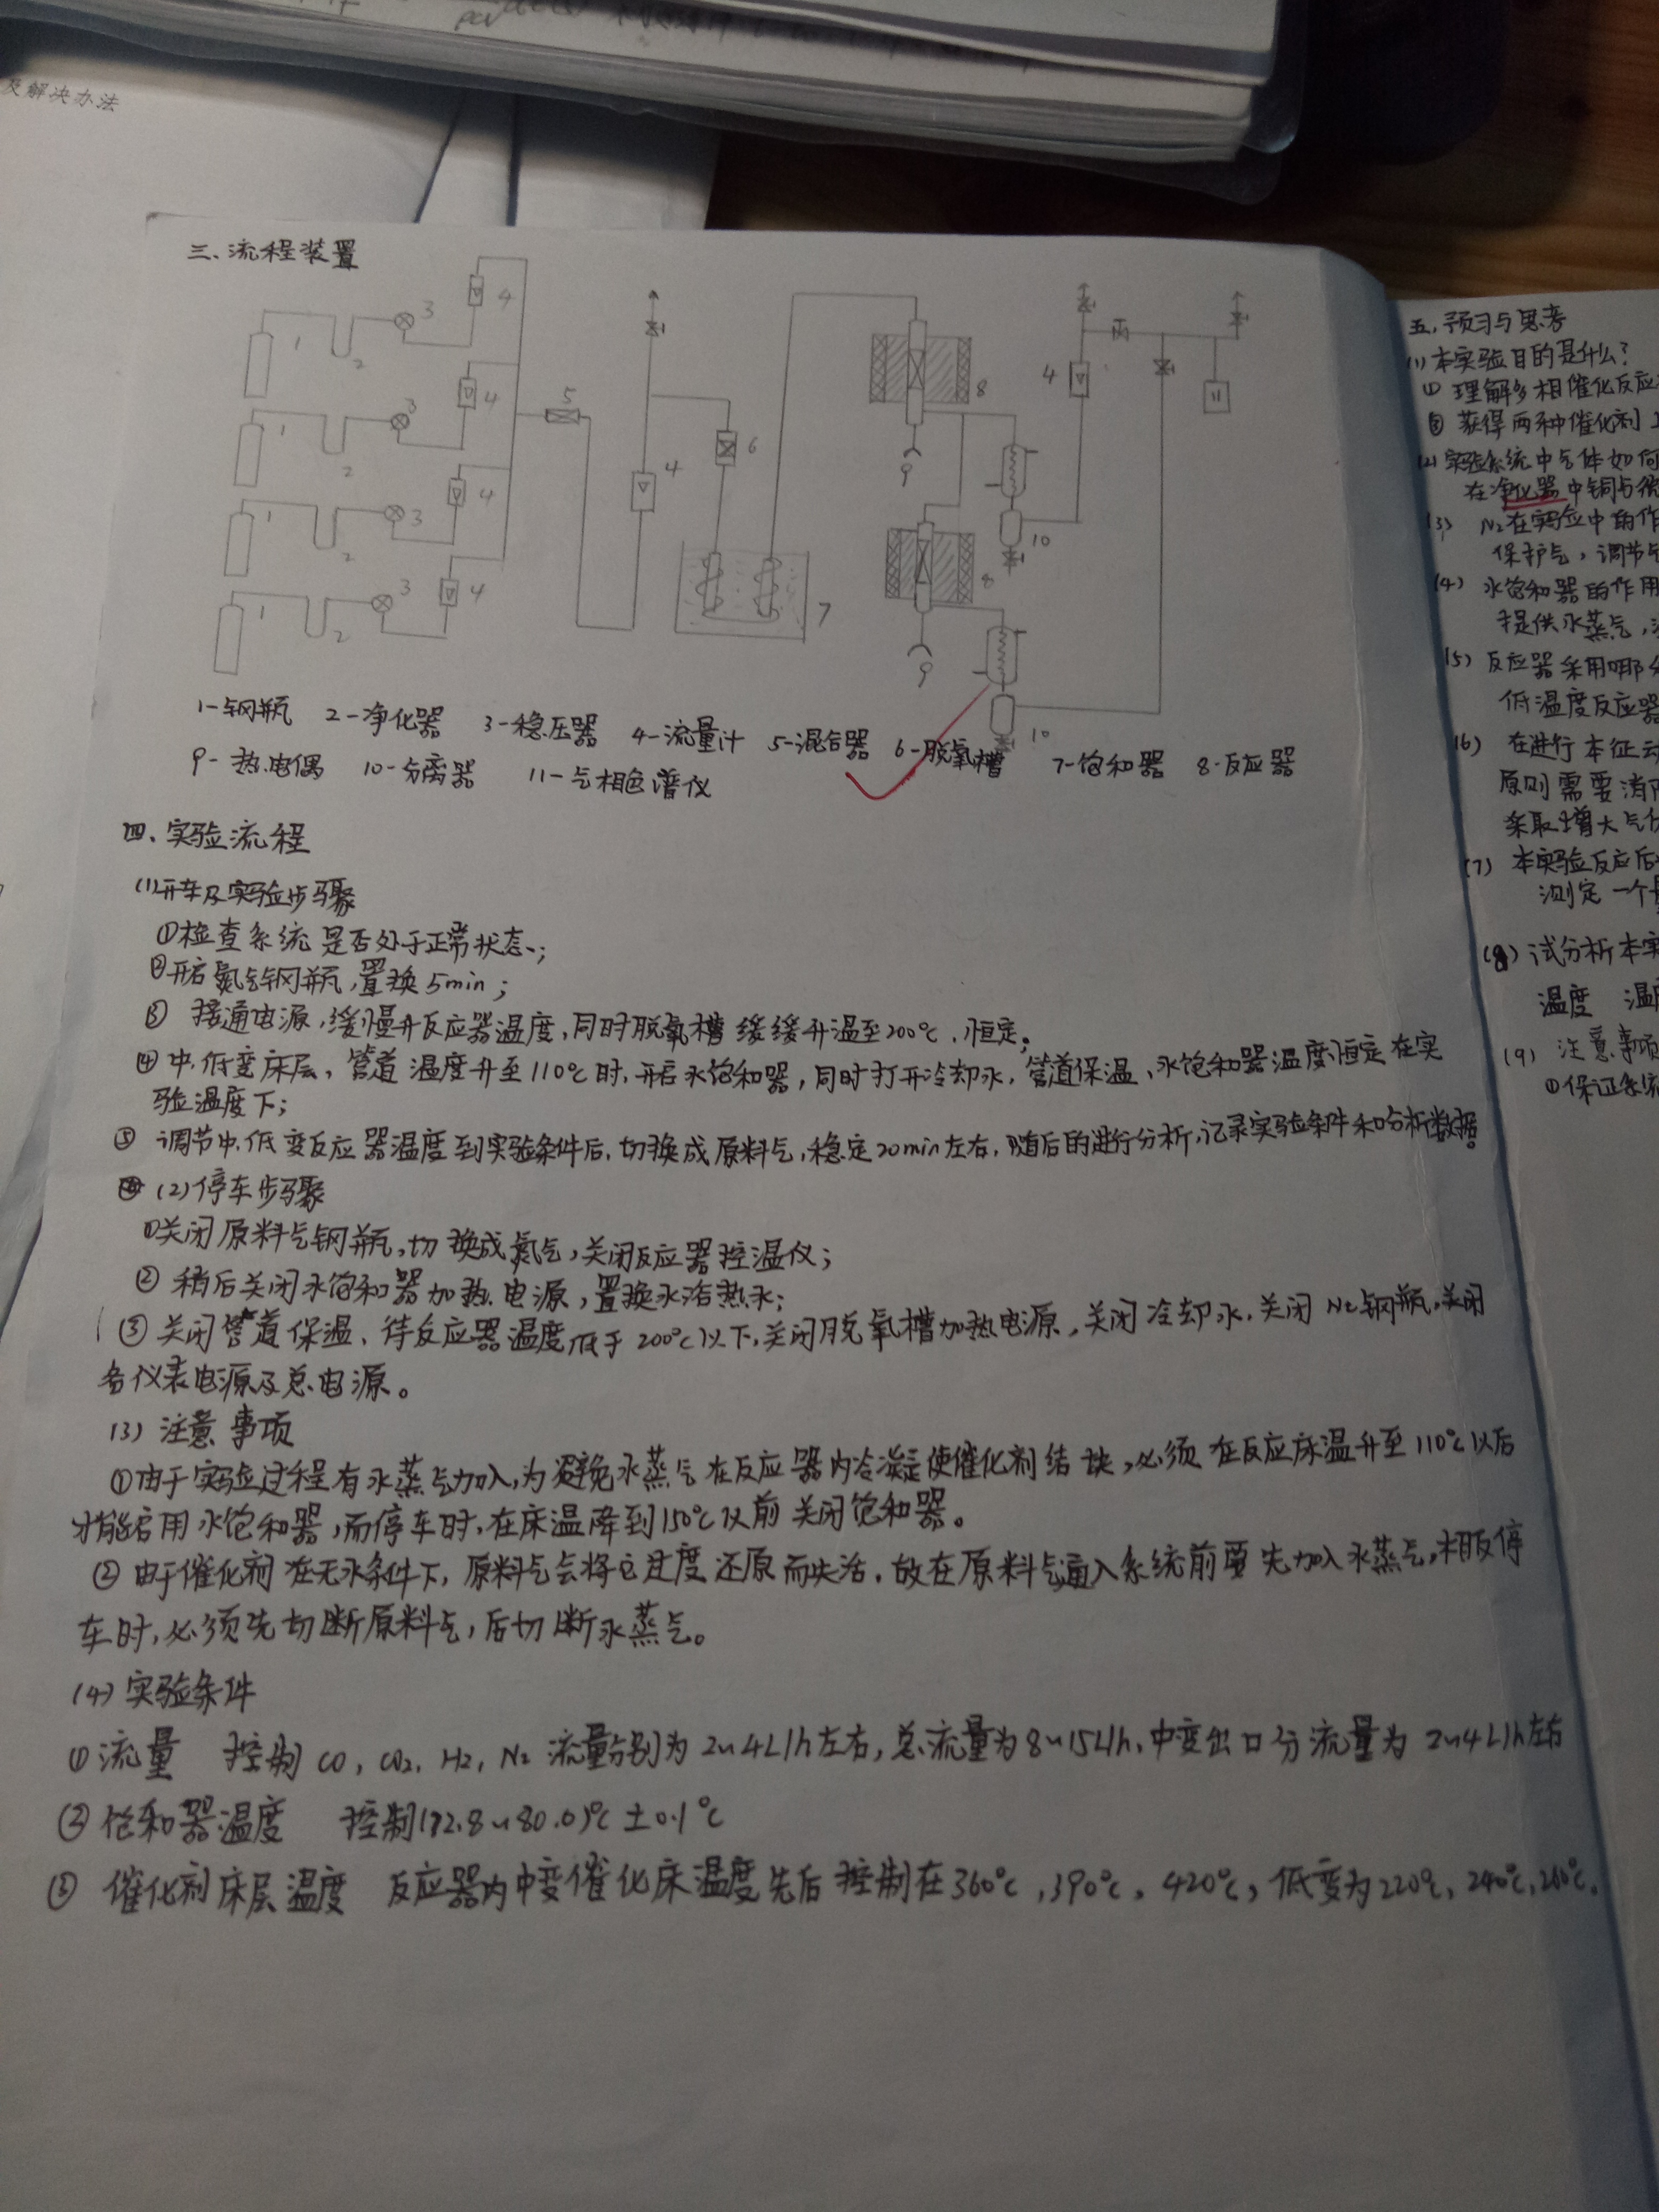 及解决办法
三、流程装置
1-钢瓶 2-净化器 3-稳压器 4-流量计 5-混合器 6-脱氧槽 7-饱和器 8-反应器
9-热电偶 10-分离器 11-气相色谱仪
四、实验流程
(1)开车及实验步骤
①检查系统是否处于正常状态;
②开启氮气钢瓶,置换5min;
③ 接通电源,缓慢升反应器温度,同时脱氧槽缓缓升温至200℃,恒定。
④中、低变床层、管道温度升至110℃时,开启水饱和器,同时打开冷却水,管道保温,水饱和器温度恒定在实
验温度下;
⑤ 调节中、低变反应器温度到实验条件后,切换成原料气,稳定20min左右,随后的进行分析,记录实验条件和分析数据。
(2)停车步骤
①关闭原料气钢瓶,切换成氮气,关闭反应器控温仪;
② 稍后关闭水饱和器加热电源,置换水浴热水;
③ 关闭管道保温、待反应器温度低于200℃以下,关闭脱氧槽加热电源,关闭冷却水,关闭N2钢瓶,关闭
各仪表电源及总电源。
(3) 注意事项
①由于实验过程有水蒸气加入,为避免水蒸气在反应器内冷凝使催化剂结块,必须在反应床温升至110℃以后
才能启用水饱和器,而停车时,在床温降到150℃以前关闭饱和器。
② 由于催化剂在无水条件下,原料气会将它过度还原而失活,故在原料气通入系统前要先加入水蒸气,相反停
车时,必须先切断原料气,后切断水蒸气。
(4) 实验条件
① 流量 控制CO, CO2, H2, N2 流量分别为2~4L/h左右,总流量为8~15L/h,中变出口分流量为2~4L/h左右
② 饱和器温度 控制(72.8~80.0)℃±0.1℃
③ 催化剂床层温度 反应器内中变催化床温度先后控制在360℃,390℃,420℃,低变为220℃,240℃,260℃.
五、预习与思考
(1) 本实验目的是什么?
① 理解多相催化反应
② 获得两种催化剂上
(2) 实验系统中气体如何
在净化器中铜与
(3) N2在实验中的作
保护气,调节
(4) 水饱和器的作用
提供水蒸气,
(5) 反应器采用哪
低温度反应器
(6) 在进行本征动
原则需要消除
采取增大气体
(7) 本实验反应后
测定一个
(8) 试分析本实
温度 温度
(9) 注意事项
①保证系统